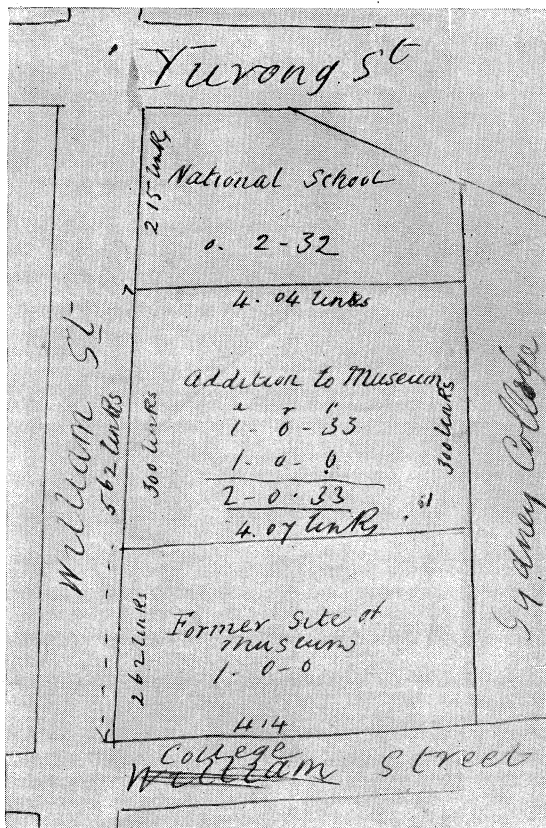 Yurong St
215 links
National School
0. 2-32
4.04 links
William St
562 links
300 links
Addition to Museum
a r p
1-0-33
1-0-0
2-0.33
4.07 links
300 links
Sydney College
262 links
Former Site of
museum
1-0-0
414
College
William Street